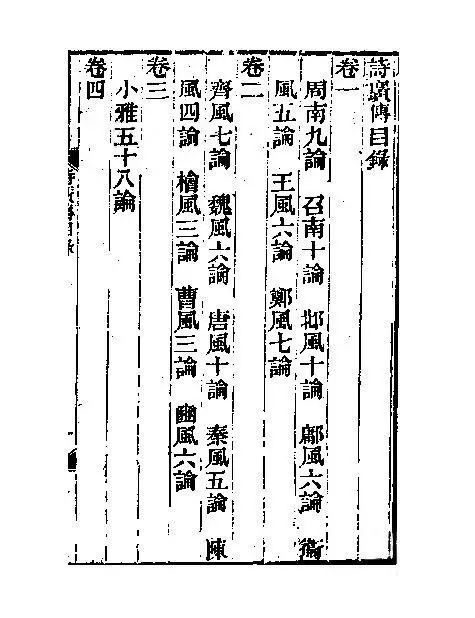 詩廣傳目錄
卷一
周南九論 召南十論 邶風十論 鄘風六論 衞
風五論 王風六論 鄭風七論
卷二
齊風七論 魏風六論 唐風十論 秦風五論 陳
風四論 檜風三論 曹風三論 豳風六論
卷三
小雅五十八論
卷四